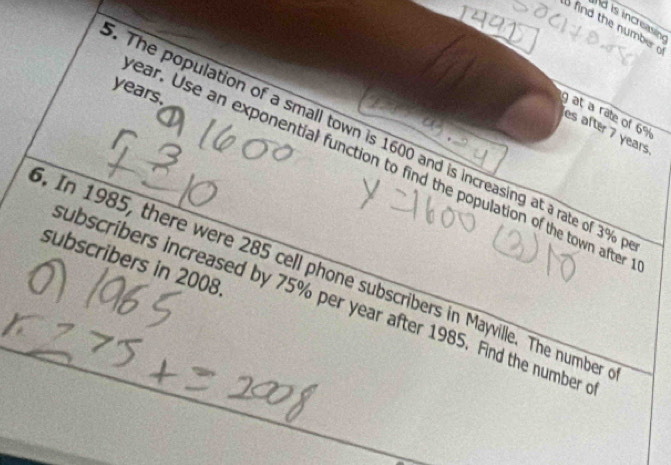 nd is increasing
to find the number of
1491
g at a rate of 6%
es after 7 years.
5. The population of a small town is 1600 and is increasing at a rate of 3% per
year. Use an exponential function to find the population of the town after 10
years.
a 1600
r 3
t = 10
y = 1600 (3) 10
6. In 1985, there were 285 cell phone subscribers in Mayville. The number of
subscribers increased by 75% per year after 1985. Find the number of
subscribers in 2008.
a) 1965
r. 75
t = 2008